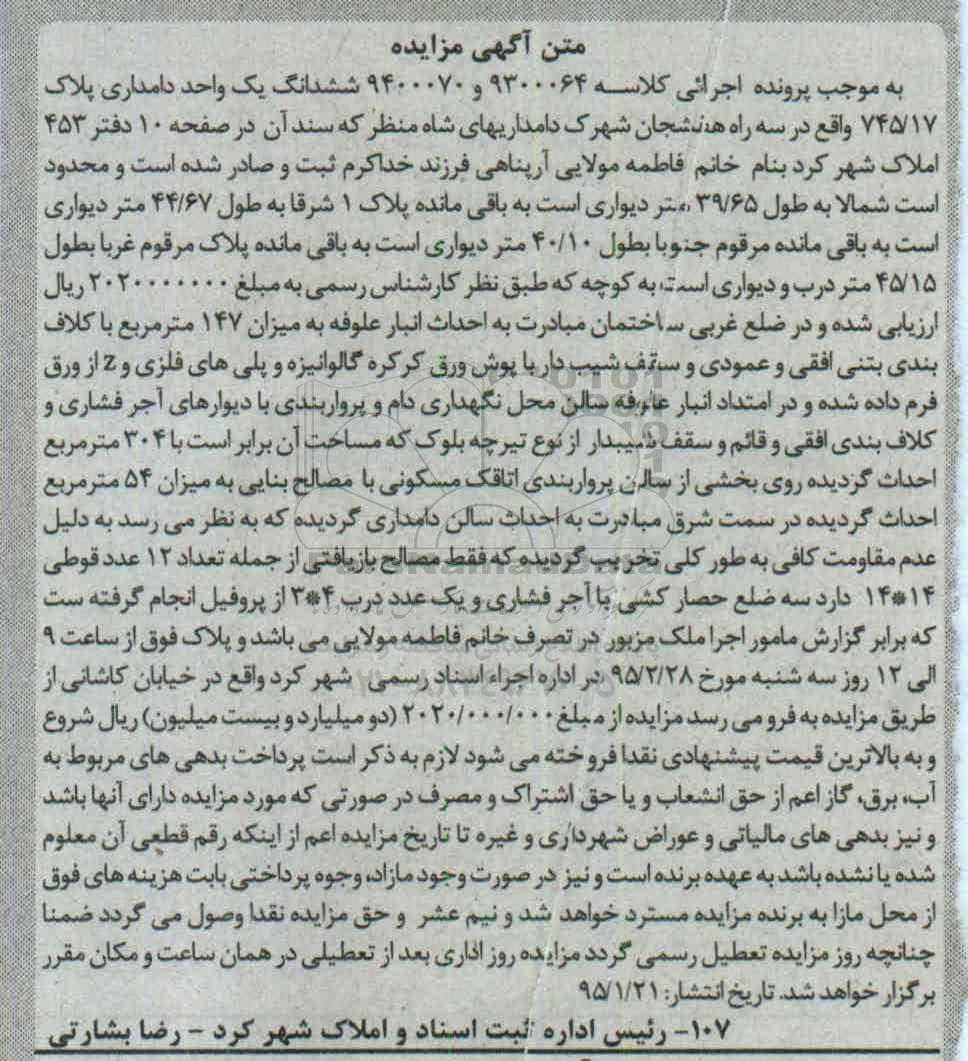 متن آگهی مزایده
به موجب پرونده اجرائی کلاسه ۹۳۰۰۰۶۴ و ۹۴۰۰۰۷۰ ششدانگ یک واحد دامداری پلاک
۷۴۵/۱۷ واقع در سه راه هفشجان شهرک دامداریهای شاه منظر که سند آن در صفحه ۱۰ دفتر ۴۵۳
املاک شهر کرد بنام خانم فاطمه مولایی آرپناهی فرزند خداکرم ثبت و صادر شده است و محدود
است شمالا به طول ۳۹/۶۵ متر دیواری است به باقی مانده پلاک ۱ شرقا به طول ۴۴/۶۷ متر دیواری
است به باقی مانده مرقوم جنوبا بطول ۴۰/۱۰ متر دیواری است به باقی مانده پلاک مرقوم غربا بطول
۴۵/۱۵ متر درب و دیواری است به کوچه که طبق نظر کارشناس رسمی به مبلغ ۲۰۲۰۰۰۰۰۰۰ ریال
ارزیابی شده و در ضلع غربی ساختمان مبادرت به احداث انبار علوفه به میزان ۱۴۷ مترمربع با کلاف
بندی بتنی افقی و عمودی و سقف شیب دار با پوش ورق کرکره گالوانیزه و پلی های فلزی و z از ورق
فرم داده شده و در امتداد انبار علوفه سالن محل نگهداری دام و پرواربندی با دیوارهای آجر فشاری و
کلاف بندی افقی و قائم و سقف شیبدار از نوع تیرچه بلوک که مساحت آن برابر است با ۳۰۴ مترمربع
احداث گردیده روی بخشی از سالن پرواربندی اتاقک مسکونی با مصالح بنایی به میزان ۵۴ مترمربع
احداث گردیده در سمت شرق مبادرت به احداث سالن دامداری گردیده که به نظر می رسد به دلیل
عدم مقاومت کافی به طور کلی تخریب گردیده که فقط مصالح بازیافتی از جمله تعداد ۱۲ عدد قوطی
۱۴*۱۴ دارد سه ضلع حصار کشی با آجر فشاری و یک عدد درب ۴*۳ از پروفیل انجام گرفته ست
که برابر گزارش مامور اجرا ملک مزبور در تصرف خانم فاطمه مولایی می باشد و پلاک فوق از ساعت ۹
الی ۱۲ روز سه شنبه مورخ ۹۵/۲/۲۸ در اداره اجراء اسناد رسمی شهر کرد واقع در خیابان کاشانی از
طریق مزایده به فرو می رسد مزایده از مبلغ ۲۰۲۰/۰۰۰/۰۰۰ (دو میلیارد و بیست میلیون) ریال شروع
و به بالاترین قیمت پیشنهادی نقدا فروخته می شود لازم به ذکر است پرداخت بدهی های مربوط به
آب، برق، گاز اعم از حق انشعاب و یا حق اشتراک و مصرف در صورتی که مورد مزایده دارای آنها باشد
و نیز بدهی های مالیاتی و عوراض شهرداری و غیره تا تاریخ مزایده اعم از اینکه رقم قطعی آن معلوم
شده یا نشده باشد به عهده برنده است و نیز در صورت وجود مازاد، وجوه پرداختی بابت هزینه های فوق
از محل مازا به برنده مزایده مسترد خواهد شد و نیم عشر و حق مزایده نقدا وصول می گردد ضمنا
چنانچه روز مزایده تعطیل رسمی گردد مزایده روز اداری بعد از تعطیلی در همان ساعت و مکان مقرر
برگزار خواهد شد. تاریخ انتشار: ۹۵/۱/۲۱
۱۰۷- رئیس اداره ثبت اسناد و املاک شهر کرد - رضا بشارتی